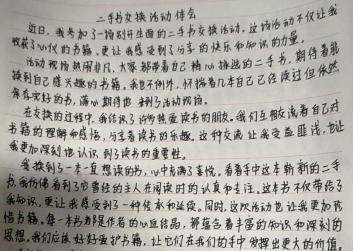 二手书交换活动体会
近日，我参加了一场别开生面的二手书交换活动。这场活动不仅让我
收获了心仪的书籍，更让我感受到了分享的快乐和知识的力量。
活动现场热闹非凡，大家都带着自己精心挑选的二手书，期待着能
换到自己感兴趣的书籍。我也不例外，怀揣着几本自己已经读过但依然
保存完好的书，满心期待地来到了活动现场。
在交换的过程中，我结识了许多热爱读书的朋友。我们互相交流着自己对
书籍的理解和感悟，分享着读书的乐趣。这种交流让我受益匪浅，也让
我更加深刻地认识到了读书的重要性。
当换到一本一直想读的书，心中充满了喜悦。看着手中这本崭新的二手
书，我仿佛看到了它曾经的主人在阅读时的认真和专注。这本书不仅带给了
我知识，更让我感受到了一种传承和延续。同时，这次活动也让我更加珍
惜书籍。每一本书都是作者的心血结晶，都蕴含着丰富的知识和深刻的
思想。我们应该好好爱护书籍，让它们在我们的手中发挥出更大的价值。